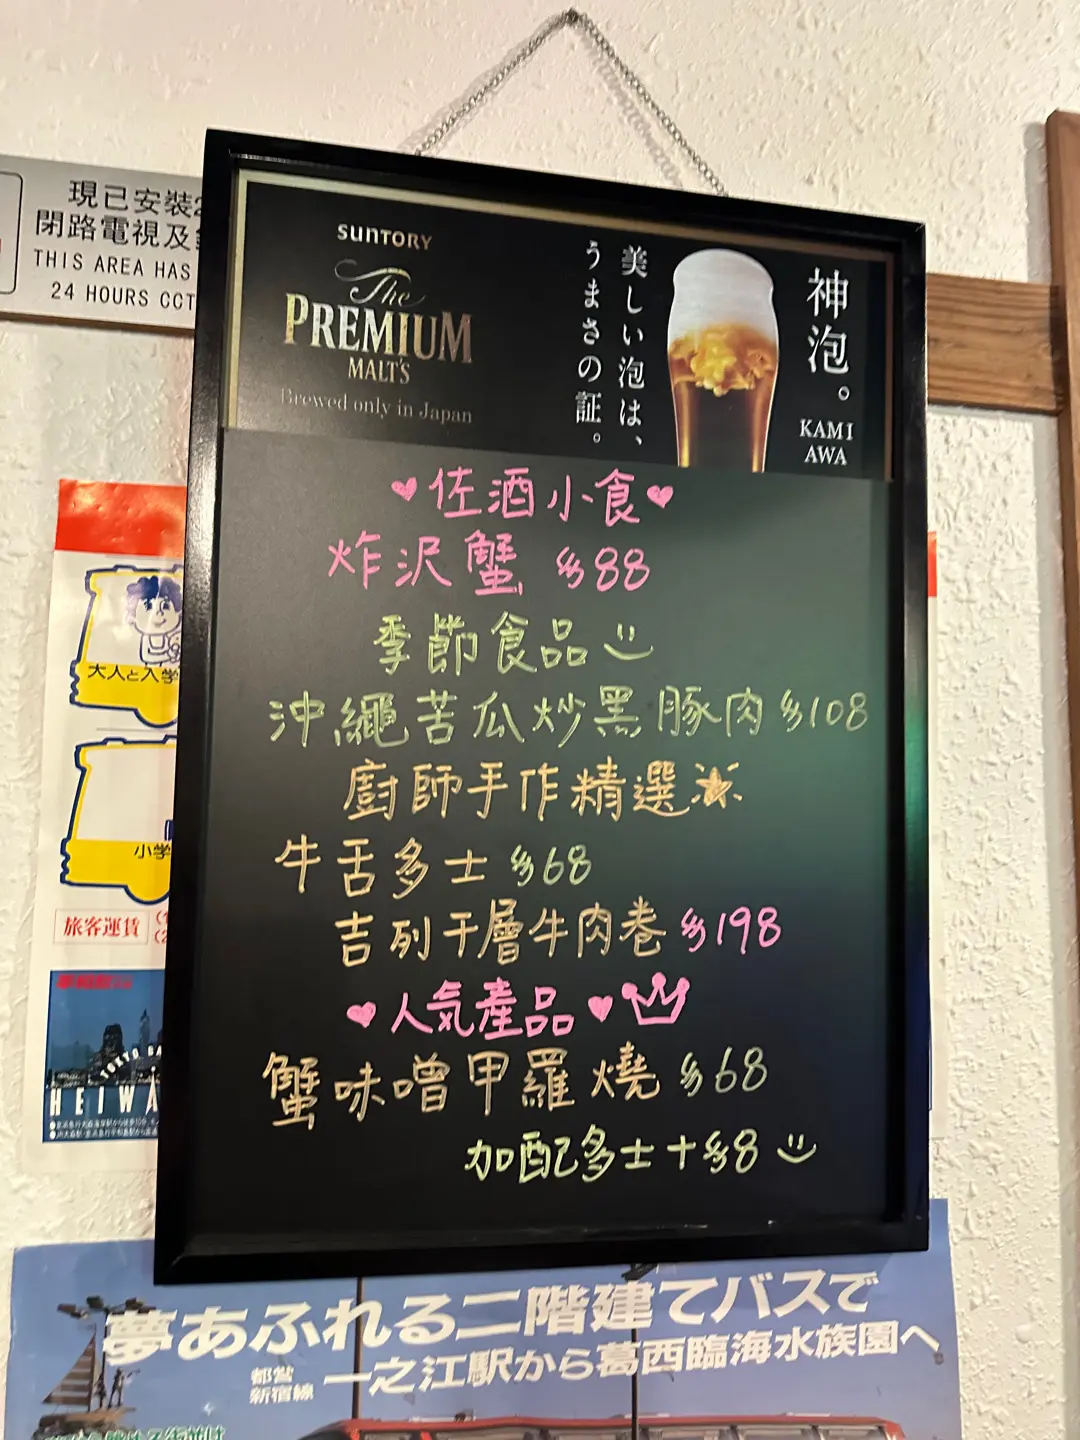 現已安裝2
閉路電視及
THIS AREA HAS
24 HOURS CCT
SUNTORY
The
PREMIUM
MALT'S
Brewed only in Japan
美しい泡は、
うまさの証。
神泡。
KAMI
AWA
♥佐酒小食♥
炸沢蟹 $88
季節食品
沖繩苦瓜炒黑豚肉 $108
廚師手作精選
牛舌多士 $68
吉列千層牛肉卷 $198
♥人気產品♥
蟹味噌甲羅燒 $68
加配多士+$8
大人と入学
小学
旅客運賃
TOKYO BA
HEIWA
夢あふれる二階建てバスで
都営
新宿線
一之江駅から葛西臨海水族園へ